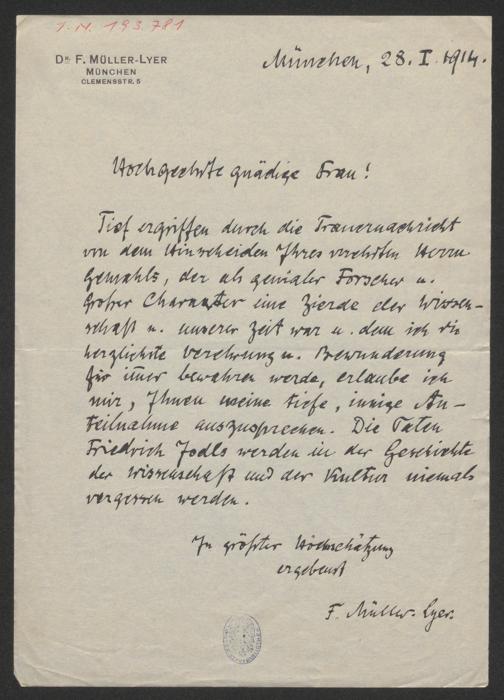 I.N. 193.781
Dr. F. MÜLLER-LYER
MÜNCHEN
CLEMENSSTR. 5
München, 28. I. 1914.
Hochgeehrte gnädige Frau!
Tief ergriffen durch die Trauernachricht
von dem Hinscheiden Ihres verehrten Herrn
Gemahls, der als genialer Forscher u.
großer Charakter eine Zierde der Wissen-
schaft u. unserer Zeit war u. dem ich die
herzlichste Verehrung u. Bewunderung
für immer bewahren werde, erlaube ich
mir, Ihnen meine tiefe, innige An-
teilnahme auszusprechen. Die Taten
Friedrich Jodls werden in der Geschichte
der Wissenschaft und der Kultur niemals
vergessen werden.
In größter Hochschätzung
ergebenst
F. Müller-Lyer.